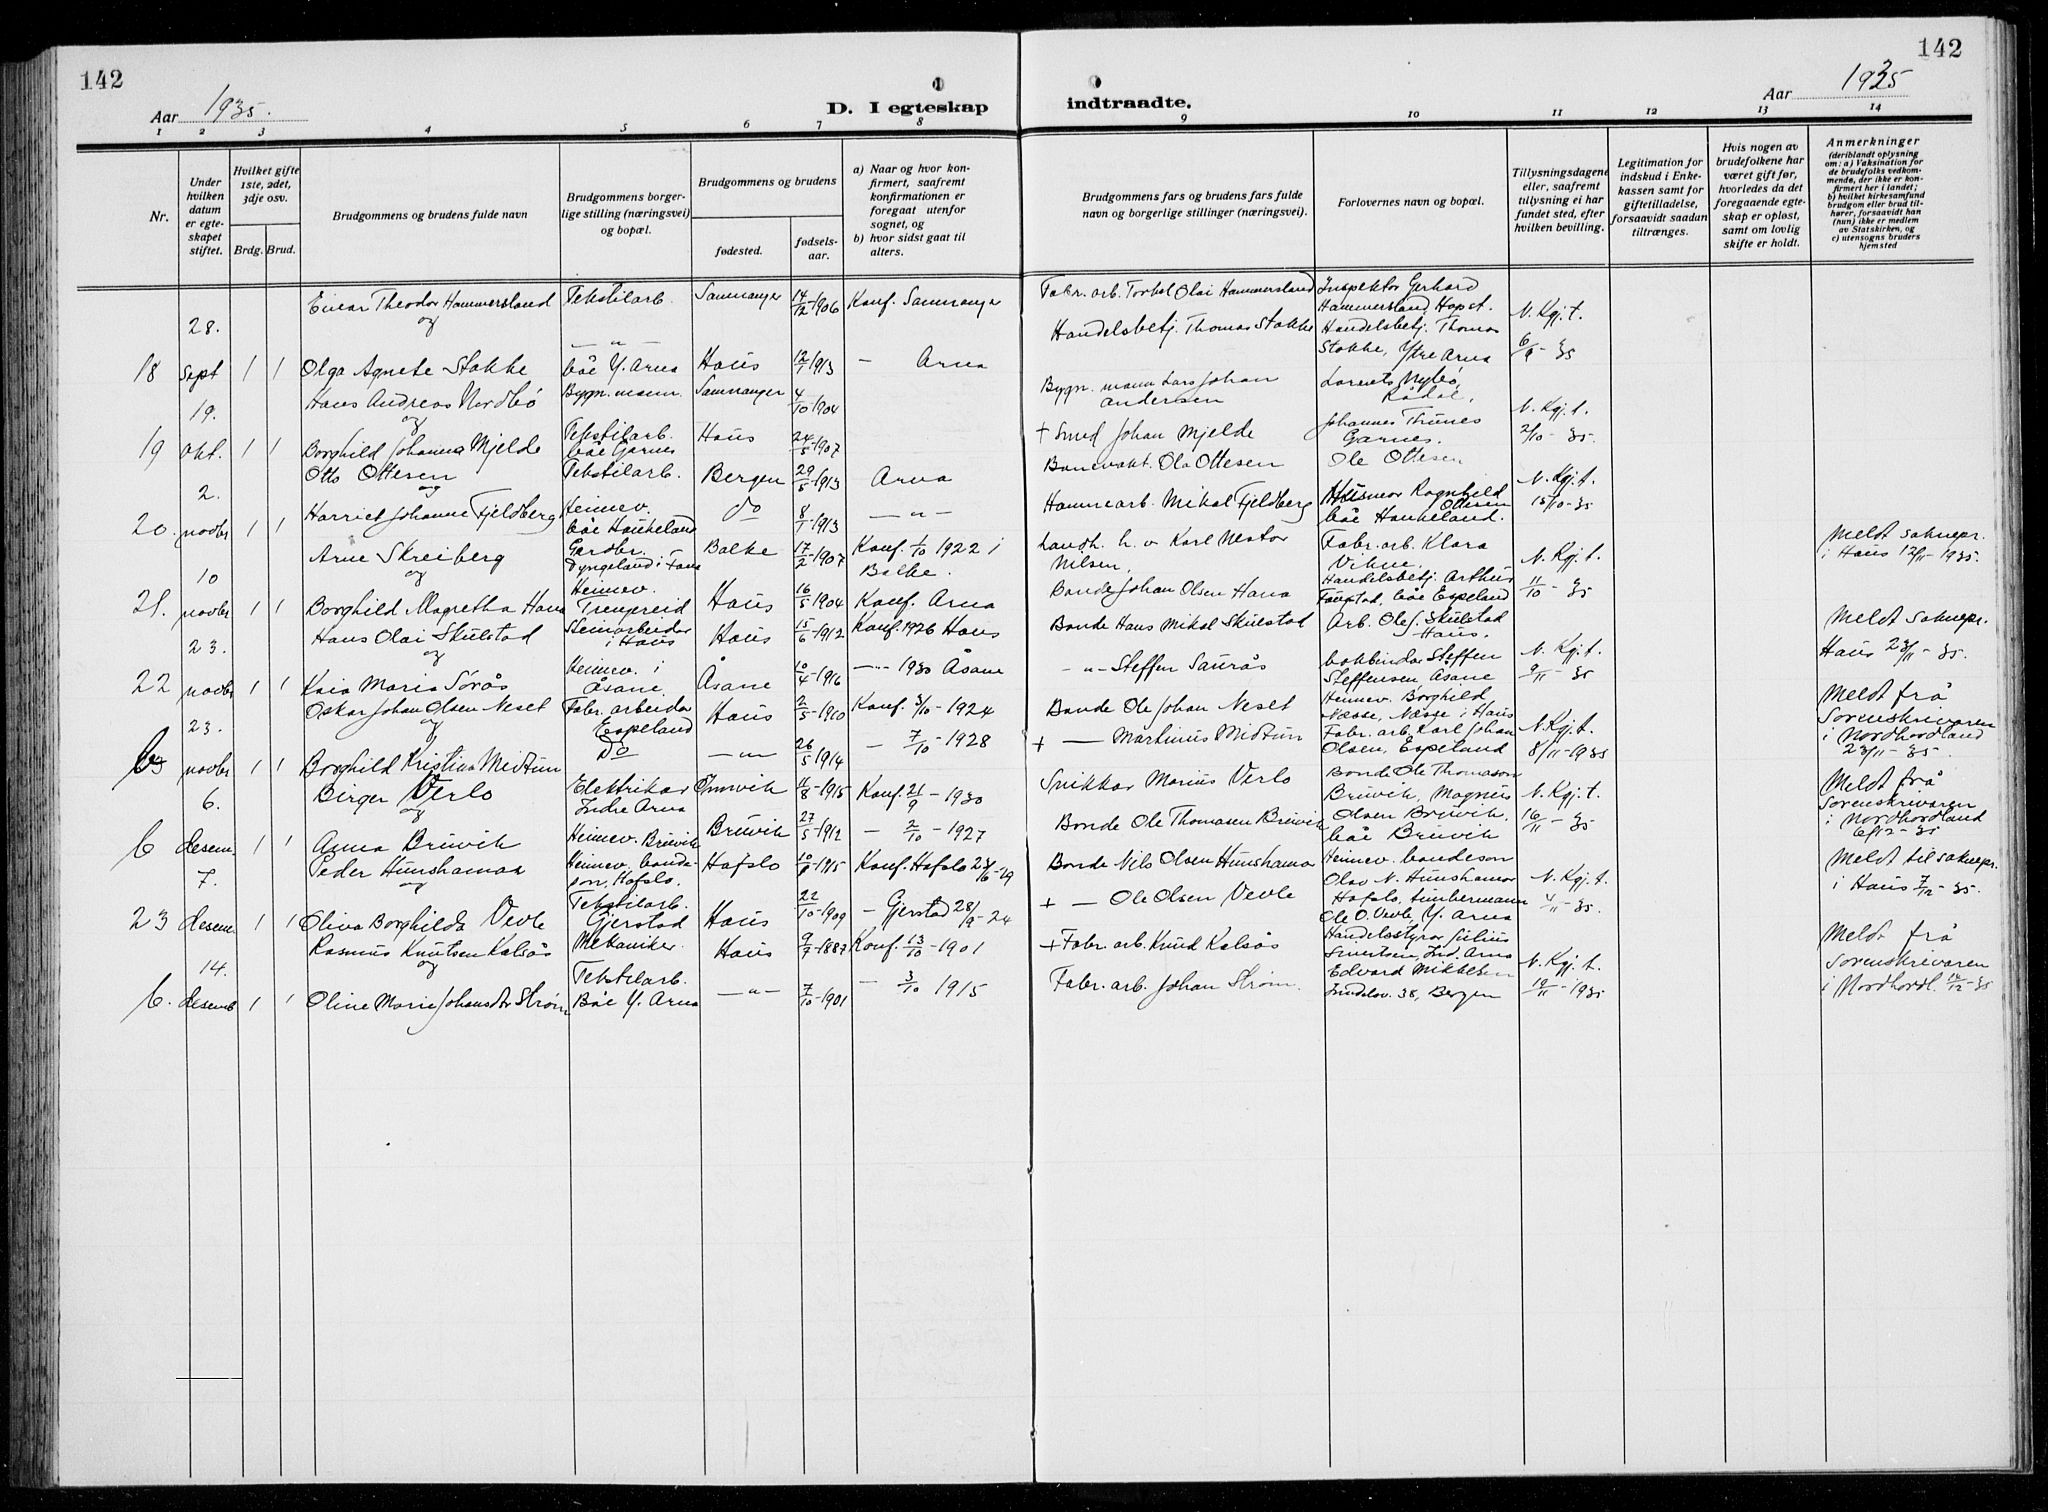 142
142
Aar 1935.
D. I egteskap
indtraadte.
Aar 1935
1 2 3 4 5 6 7 8 9 10 11 12 13 14
Nr.
Under hvilken datum er egteskapet stiftet.
Hvilket gifte 1ste, 2det, 3dje osv.
Brdg. Brud.
Brudgommens og brudens fulde navn
Brudgommens borgerlige stilling (næringsvei) og bopæl.
Brudgommens og brudens
fødested.
fødselsaar.
a) Naar og hvor konfirmert, saafremt konfirmationen er foregaat utenfor sognet, og
b) hvor sidst gaat til alters.
Brudgommens fars og brudens fars fulde navn og borgerlige stillinger (næringsvei).
Forlovernes navn og bopæl.
Tillysningsdagene eller, saafremt tillysning ei har fundet sted, efter hvilken bevilling.
Legitimation for indskud i Enkekassen samt for giftetilladelse, forsaavidt saadan tiltrænges.
Hvis nogen av brudefolkene har været gift før, hvorledes da det foregaaende egteskap er opløst, samt om lovlig skifte er holdt.
Anmerkninger
(deriblandt oplysning om: a) Vaksination for de brudefolks vedkommende, der ikke er konfirmert her i landet; b) hvilket kirkesamfund brudgom eller brud tilhører, forsaavidt han (hun) ikke er medlem av Statskirken, og c) utensogns bruders hjemsted
18 28. Sept 1 1
Einar Theodor Hammersland Tekstilarb. Samnanger 14/12 1906 Konf. Samnanger Fabr. arb. Torkel Olai Hammersland Inspektør Gerhard Hammersland, Hopst.
og
Olga Agnete Stokke — " — båe Y. Arna Haus 12/1 1913 — Arna Handelsbetj. Thomas Stokke Handelsbetj. Thomas Stokke, Ytre Arna N. Kgj. t. 6/9 - 35
19 19. Okt. 1 1
Hans Andreas Nordbö Bygn. mann. Samnanger 4/10 1904 Bygn. mann Lars Johan Andersen Lorents Nybö, Rådal,
og
Borghild Johanna Mjelde Tekstilarb. båe Garnes Haus 24/5 1907 + Smed Johan Mjelde Johannes Trunes Garnes. N. Kgj. t. 2/10 - 35.
20. 2. novbr 1 1
Otto Ottesen Tekstilarb. Bergen 29/5 1913 Arna Banevakt. Ole Ottesen Ole Ottesen
og
Harriet Johanne Fjeldberg Heimev. båe Haukeland do 8/1 1913 — " — Hammearb. Mikal Fjeldberg Husmor Ragnhild Ottesen båe Haukeland. N. Kgj. t. 15/10 - 35
21. 10 novbr 1 1
Arne Skreiberg Gardbr. Dyngeland i Fana Balke 17/2 1907 Konf. 1/10 1922 i Balke. Landh. h. v Karl Nestor Nilsen, Fabr. arb. Klara Vikne.
og
Borghild Magretha Hana Heimev. Trengreid Haus 16/5 1904 Konf. Arna Bonde Johan Olsen Hana Handelsbetj. Arthur Faustad, båe Espeland N. Kgj. t. 11/10 - 35 Meldt soknepr. i Haus 12/11 - 1935.
22 23. novbr 1 1
Hans Olai Skulstad Steinarbeidar i Haus Haus 15/6 1912 Konf. 1926 Haus Bonde Hans Mikal Skulstad Arb. Ole J. Skulstad Haus.
og
Kaia Maria Sørås Heimev. i Åsane. Åsane 10/4 1916 — " — 1930 Åsane — " — Steffen Saurås bokbindar Steffen Steffensen, Åsane N. Kgj. t. 9/11 - 35 Meldt soknepr. Haus 23/11 - 35.
b 23. novbr 1 1
Oskar Johan Olsen Neset Fabr. arbeidar Espeland Haus 2/5 1910 Konf. 5/10 - 1924 Bonde Ole Johan Neset Heimev. Borghild Næsse, Næsse i Haus
og
Borghild Kristina Midtun do — " — 26/5 1914 — 7/10 - 1928 + — Martinus Midtun Fabr. arb. Karl Johan Olsen, Espeland N. Kgj. t. 8/11 - 1935 Meldt frå Sorenskrivaren i Nordhordland 23/11 - 35.
b 6. desem. 1 1
Birger Verlo Elektrikar Indre Arna 11/8 1915 Konf. 21/9 - 1930 Snikkar Marius Verlo Bonde Ole Thomasen Bruvik, Magnus
og
Anna Bruvik Heimev. Bruvik Bruvik 27/5 1912 — 2/10 - 1927 Bonde Ole Thomasen Bruvik Olsen Bruvik. båe Bruvik N. Kgj. t. 16/11 - 35 Meldt frå Sorenskrivaren i Nordhordland 6/12 - 35
23 7. desem. 1 1
Peder Hunshamar Heimev. bondeson, Hafslo. Hafslo 1915 Konf. Hafslo Bonde Nils Olsen Hunshamar Heimev. bondeson Olav N. Hunshamar Hafslo, timbermann
og
Oliva Borghilda Vevle Tekstilarb. Gjerstad Haus 22/10 1909 — Gjerstad 28/9 - 24 + — Ole Olsen Vevle Ole O. Vevle, Y. Arna N. Kgj. t. 4/11 - 35. Meldt til soknepr. i Haus 7/12 - 35.
b. 14. desemb 1 1
Rasmus Knutsen Kalsås Mekaniker. Haus 9/7 1887 Konf. 13/10 - 1901 + Fabr. arb. Knud Kalsås Handelsstyrar Julius Sivertsen, Ind. Arna
og
Oline Marie Johansdtr Strøm Tekstilarb. Båe Y. Arna — " — 7/10 1901 — 3/10 1915 Fabr. arb. Johan Strøm. Edvard Mikkelsen 38, Bergen N. Kgj. t. 19/11 - 1935 Meldt frå Sorenskrivaren i Nordhordl. 14/12 - 35